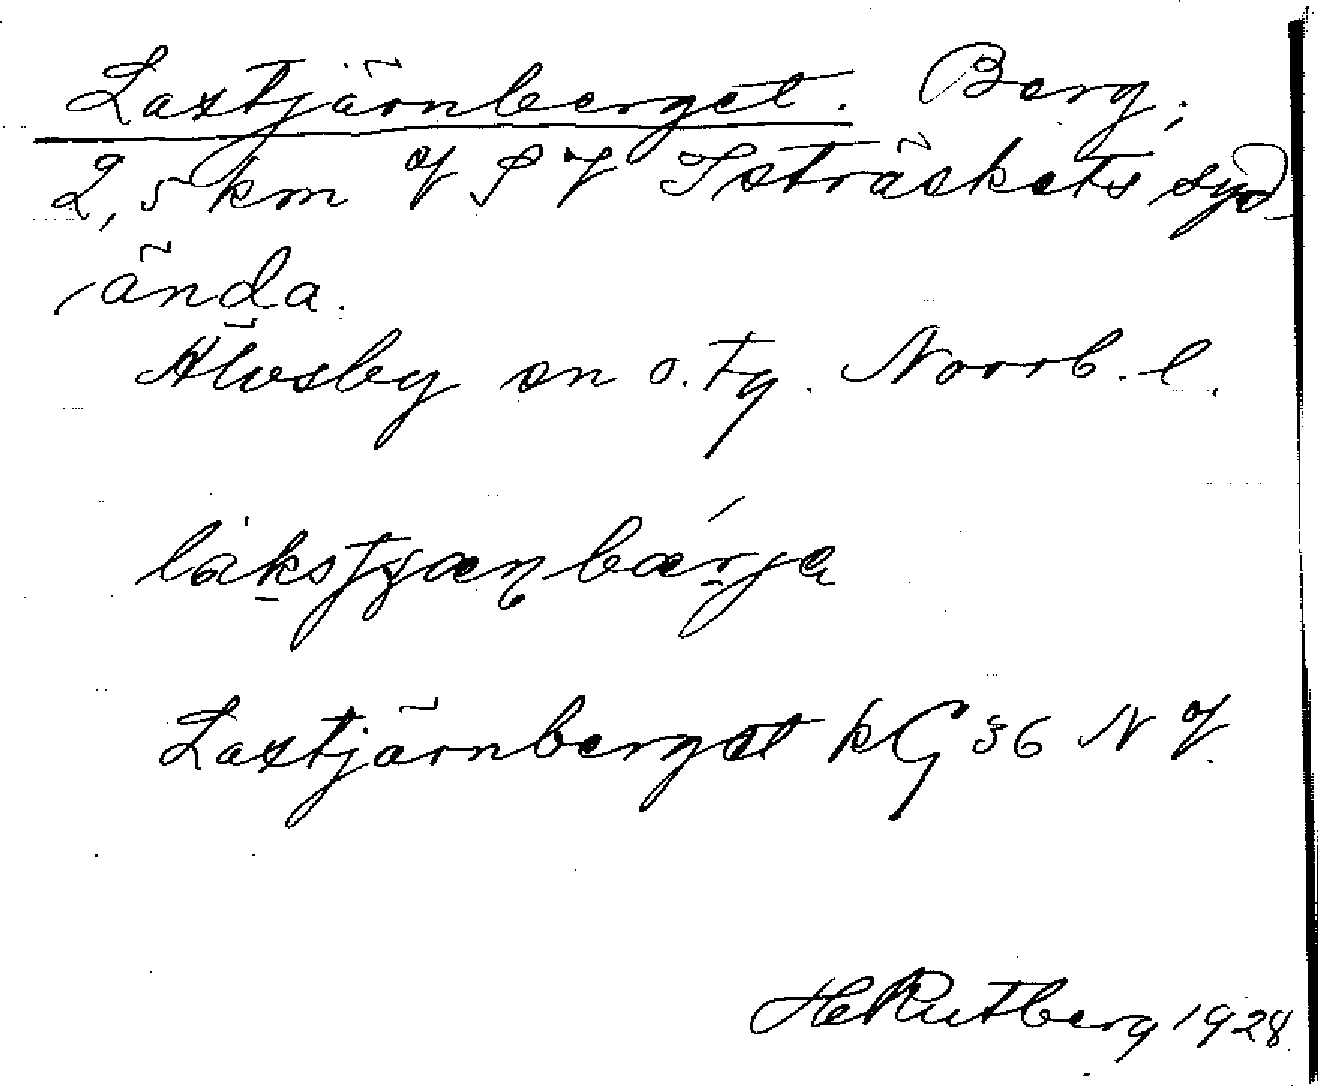 Laxtjärnberget. Berg,
2,5 km V S V Isträskets syd-
ända.
Älvsby sn o. tg. Norrb. l.
Laxtjärnberget kG 36 N V.
H Rutberg 1928